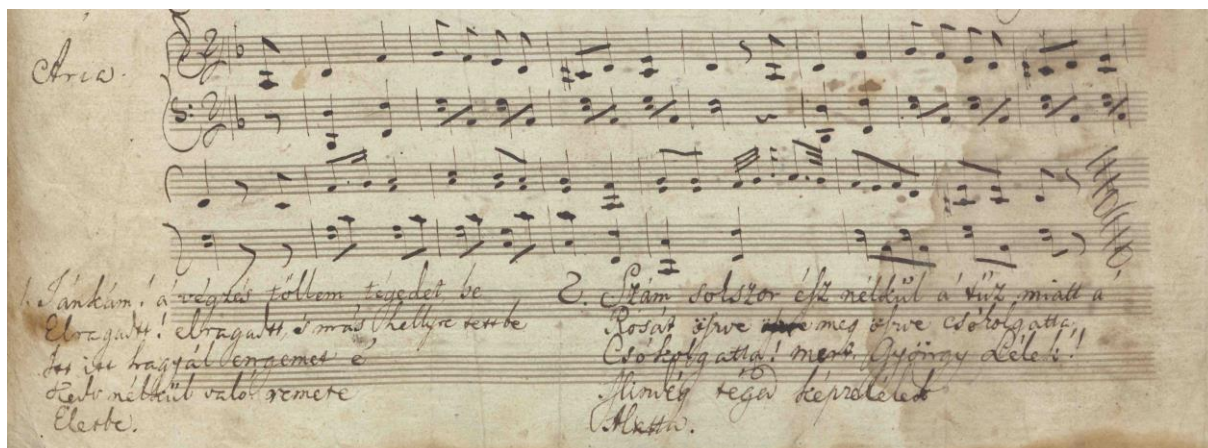 Aria.
Jánkám! á végzés töllem tégedet be
Elragadtt! elragadtt, és más hellyre tettbe
Itt itt hagyál engemet é
Kedv nélkül való remete
Eletbe.
2. Szám solszor ész nélkül á tüz miatt á
Rósát öszve meg öszve csókolgatta,
Csókolgatta! mert Gyöngy Lélek!
Mindég téged képzelélek